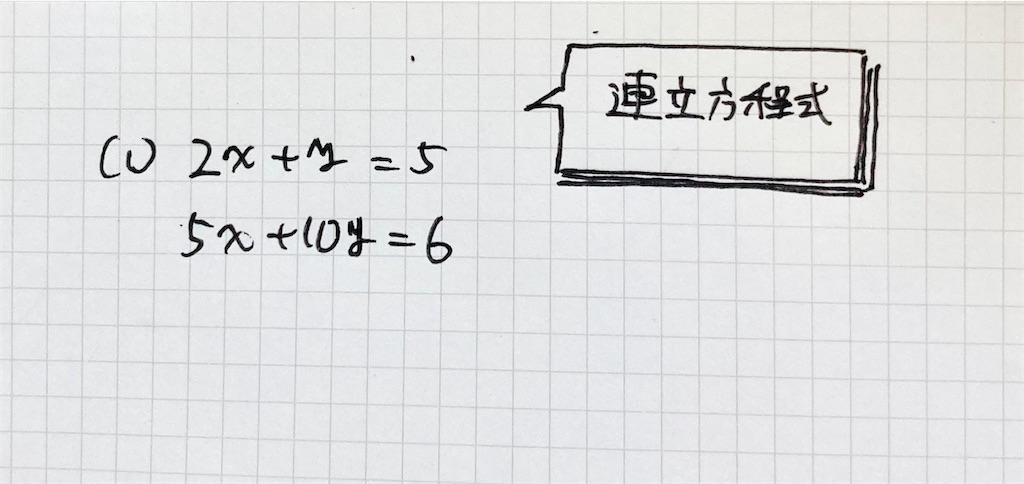 連立方程式
(1) 2x+y=5
5x+10y=6